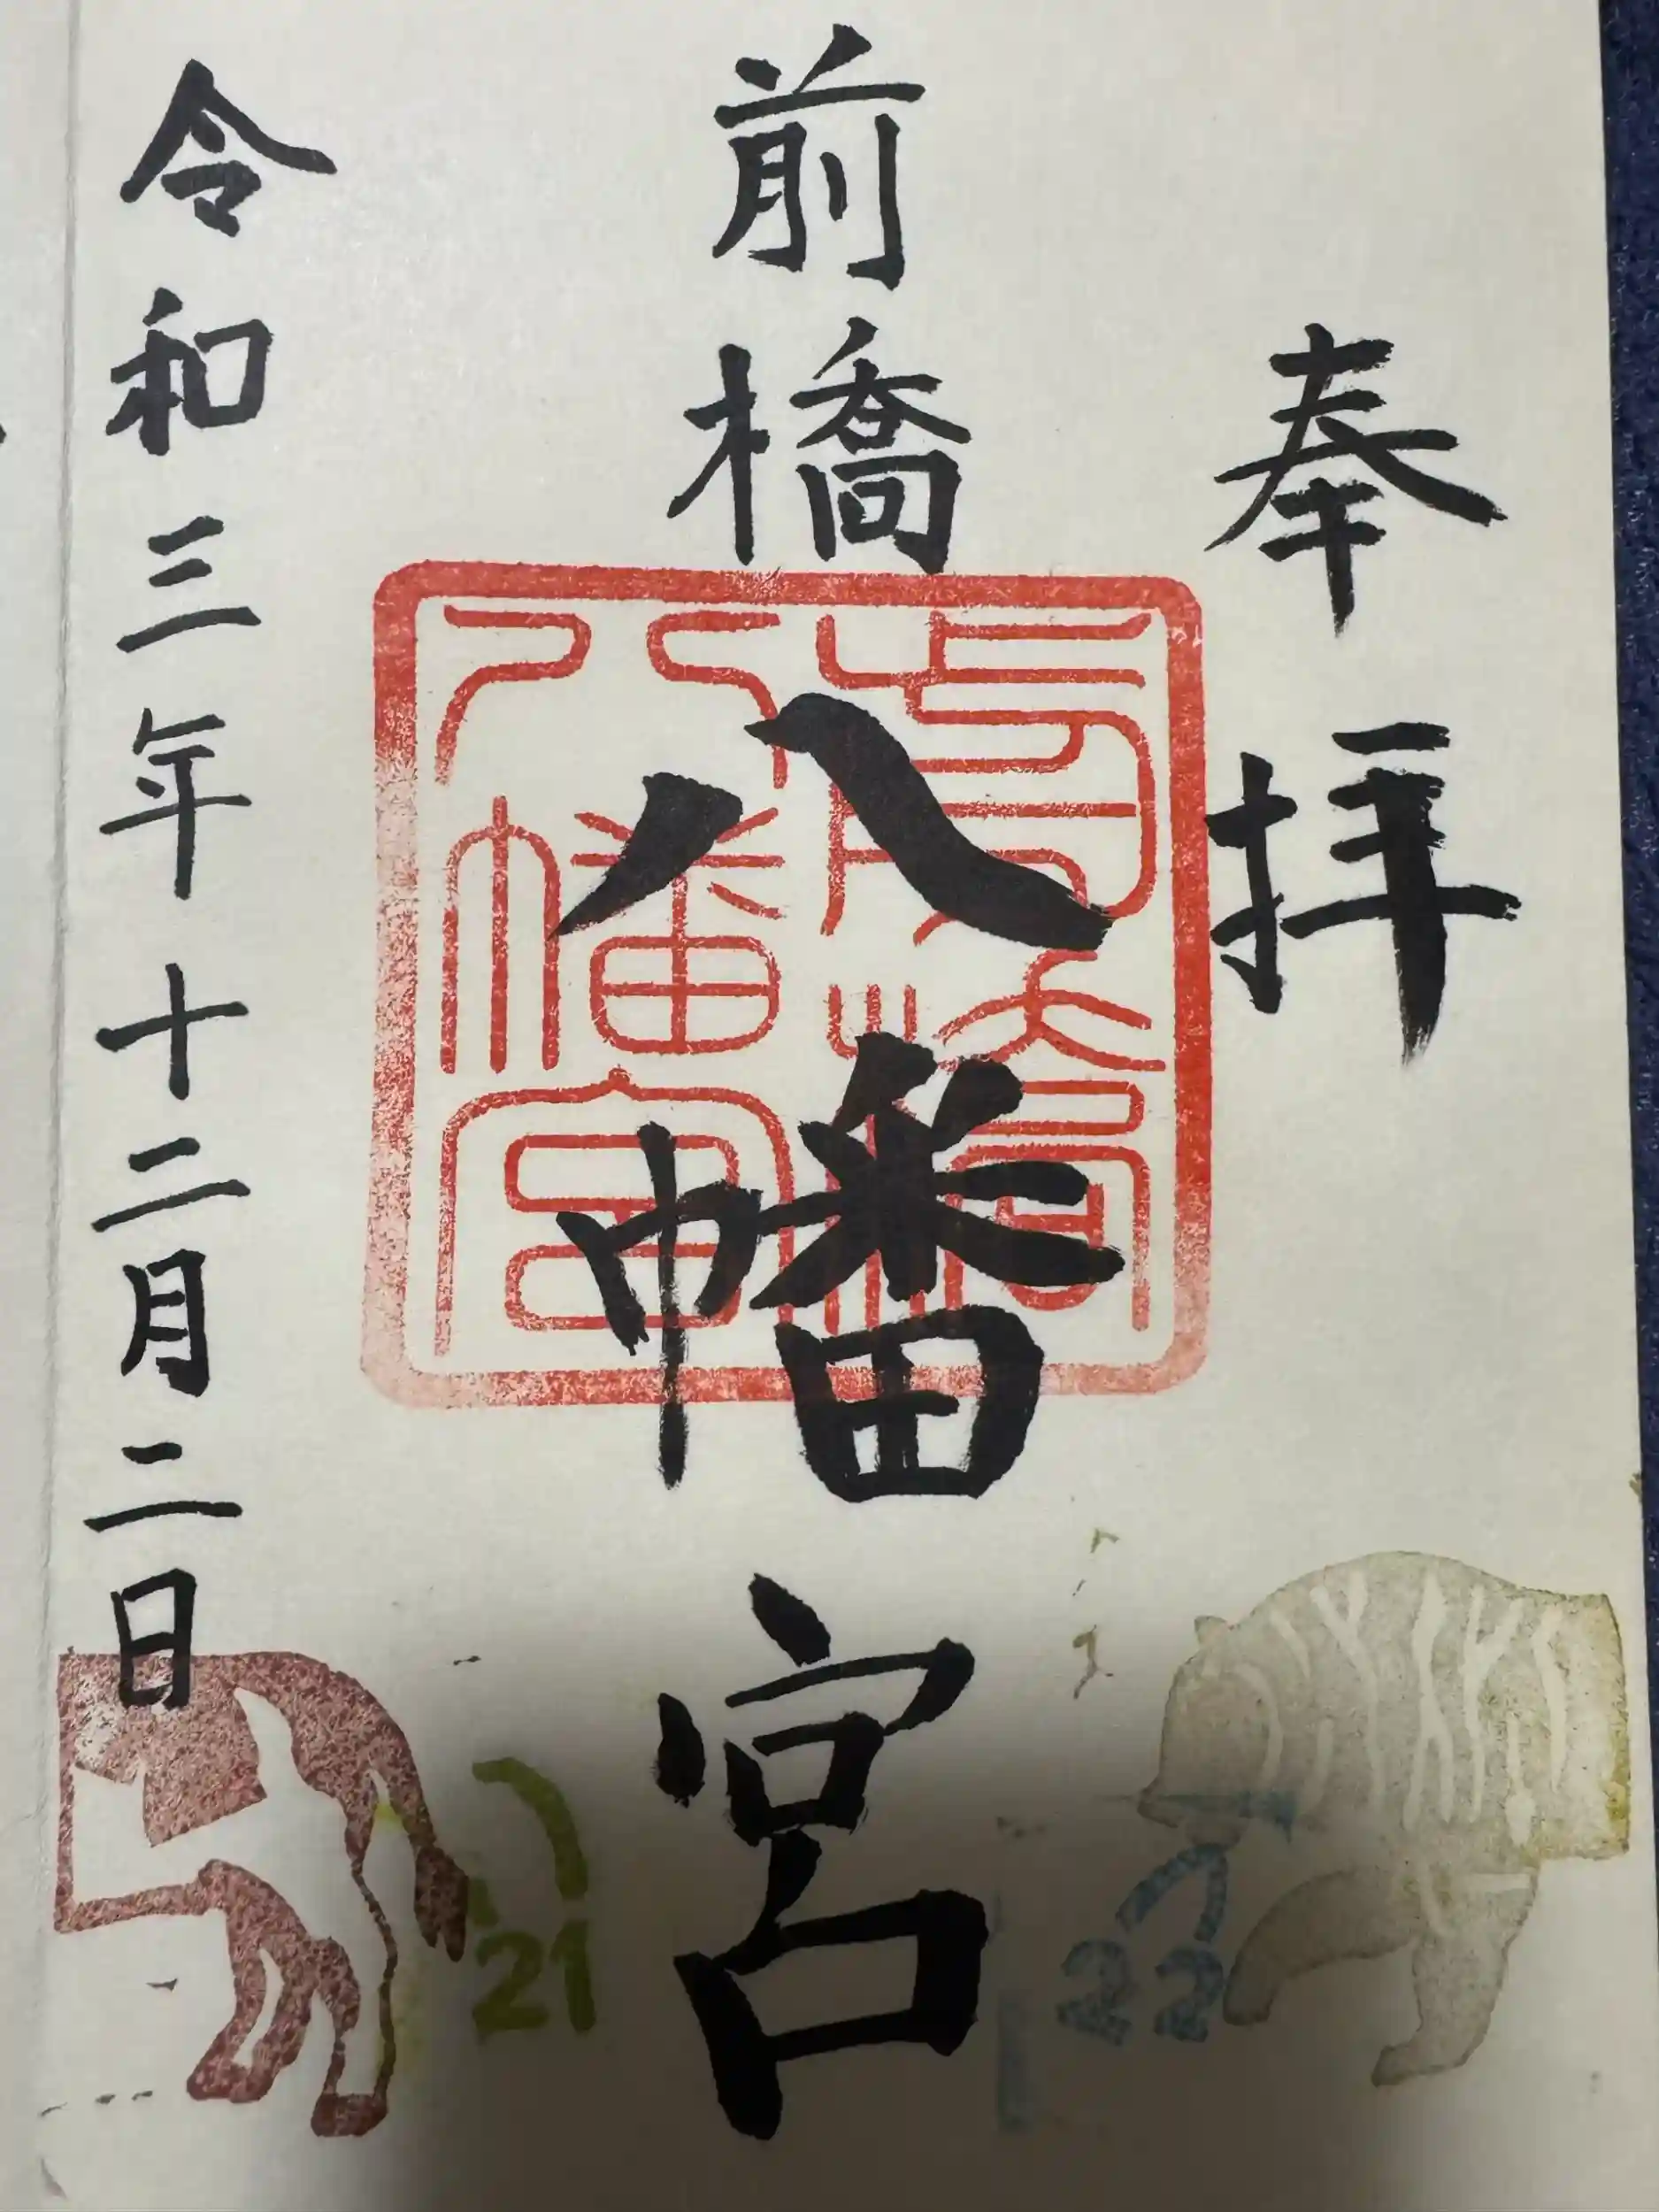 奉拝
前橋八幡宮
前橋八幡宮
令和三年十二月二日
21
22